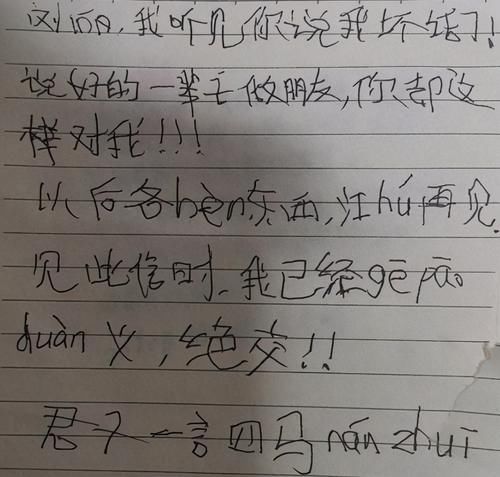 我听见你说我坏话了!
说好的一辈子做朋友,你却这
样对我!!!
以后各bèn东西,江hú再见.
见此信时,我已经gē pāo
duàn义,绝交!!
君子一言四马nán zhuī